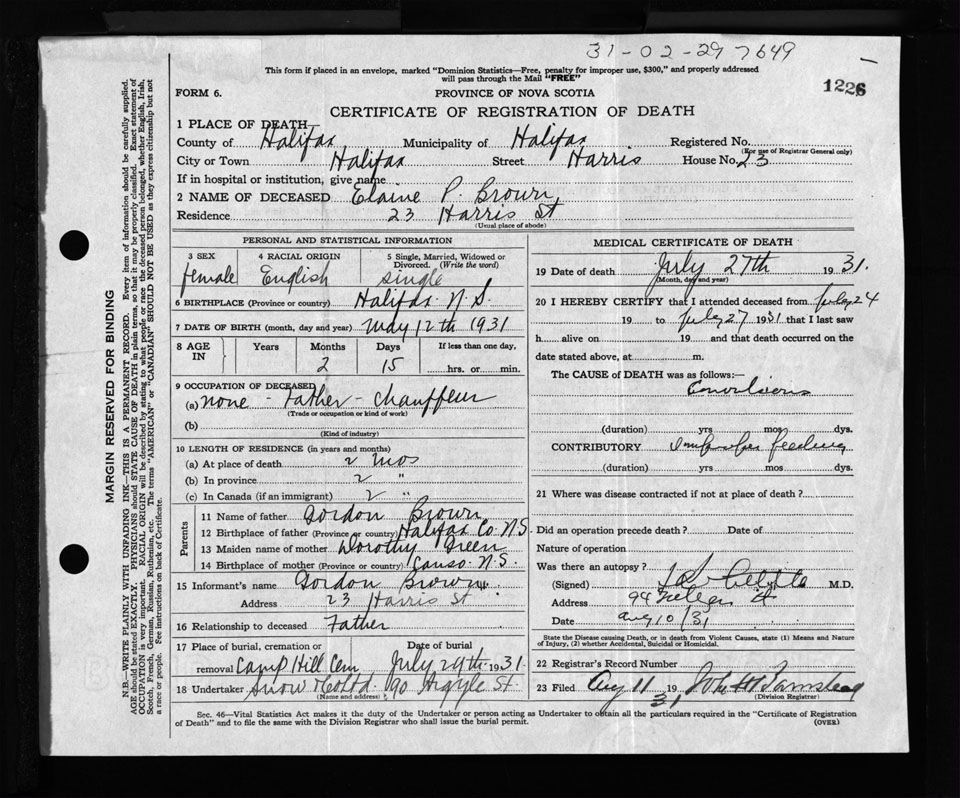 31-02-297649
1226
This form if placed in an envelope, marked "Dominion Statistics—Free, penalty for improper use, $300," and properly addressed
will pass through the Mail "FREE"
FORM 6.
PROVINCE OF NOVA SCOTIA
CERTIFICATE OF REGISTRATION OF DEATH
1 PLACE OF DEATH—
County of Halifax Municipality of Halifax Registered No.
(For use of Registrar General only)
City or Town Halifax Street Harris House No. 23
If in hospital or institution, give name
2 NAME OF DECEASED Elaine P. Brown
Residence 23 Harris St
(Usual place of abode)
PERSONAL AND STATISTICAL INFORMATION
3 SEX
4 RACIAL ORIGIN
5 Single, Married, Widowed or
Divorced. (Write the word)
female English single
6 BIRTHPLACE (Province or country) Halifax N.S.
7 DATE OF BIRTH (month, day and year) May 12th 1931
8 AGE
IN
Years Months Days If less than one day,
2 15 hrs. or min.
9 OCCUPATION OF DECEASED
(a) none - Father - Chauffeur
(Trade or occupation or kind of work)
(b)
(Kind of industry)
10 LENGTH OF RESIDENCE (in years and months)
(a) At place of death 2 mos
(b) In province 2 "
(c) In Canada (if an immigrant) 2 "
Parents
11 Name of father Gordon Brown
12 Birthplace of father (Province or country) Halifax Co. N.S.
13 Maiden name of mother Dorothy Green
14 Birthplace of mother (Province or country) Canso N.S.
15 Informant's name Gordon Brown
Address 23 Harris St
16 Relationship to deceased Father
17 Place of burial, cremation or Date of burial
removal Camp Hill Cem July 29th 1931
18 Undertaker Snow & Co Ltd. 90 Argyle St.
(Name and address)
MEDICAL CERTIFICATE OF DEATH
19 Date of death July 27th 1931.
(Month, day and year)
20 I HEREBY CERTIFY that I attended deceased from July 24
19 to July 27 1931 that I last saw
h alive on 19 and that death occurred on the
date stated above, at m.
The CAUSE of DEATH was as follows:—
Convulsions
(duration) yrs mos dys.
CONTRIBUTORY Improper feeding
(duration) yrs mos dys.
21 Where was disease contracted if not at place of death?
Did an operation precede death? Date of
Nature of operation
Was there an autopsy?
(Signed) M.D.
Address 94 St
Date Aug 10/31
State the Disease causing Death, or in death from Violent Causes, state (1) Means and Nature
of Injury, (2) whether Accidental, Suicidal or Homicidal.
22 Registrar's Record Number
23 Filed Aug 11 1931
(Division Registrar)
Sec. 46—Vital Statistics Act makes it the duty of the Undertaker or person acting as Undertaker to obtain all the particulars required in the "Certificate of Registration
of Death" and to file the same with the Division Registrar who shall issue the burial permit.
(OVER)
MARGIN RESERVED FOR BINDING
N.B.—WRITE PLAINLY WITH UNFADING INK—THIS IS A PERMANENT RECORD. Every item of information should be carefully supplied.
AGE should be stated EXACTLY. PHYSICIANS should STATE CAUSE OF DEATH in plain terms, so that it may be properly classified. Exact statement of
OCCUPATION is very important. RACIAL ORIGIN will be described by stating to what people or race the deceased person belonged, whether English, Irish,
Scotch, French, German, Russian, Ruthenian, etc. The terms "AMERICAN" or "CANADIAN" SHOULD NOT BE USED as they express citizenship but not
a race or people. See instructions on back of Certificate.